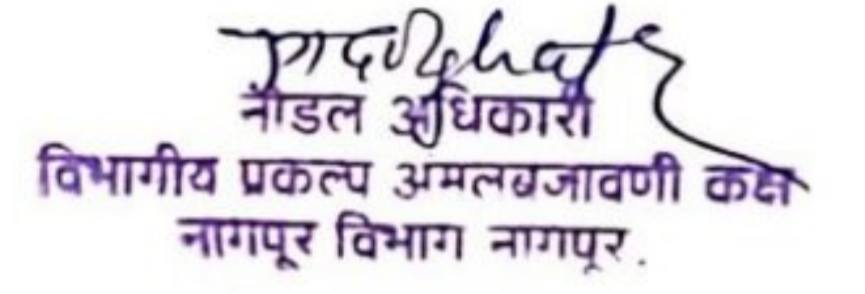 नोडल अधिकारी
विभागीय प्रकल्प अमलबजावणी कक्ष
नागपूर विभाग नागपूर.